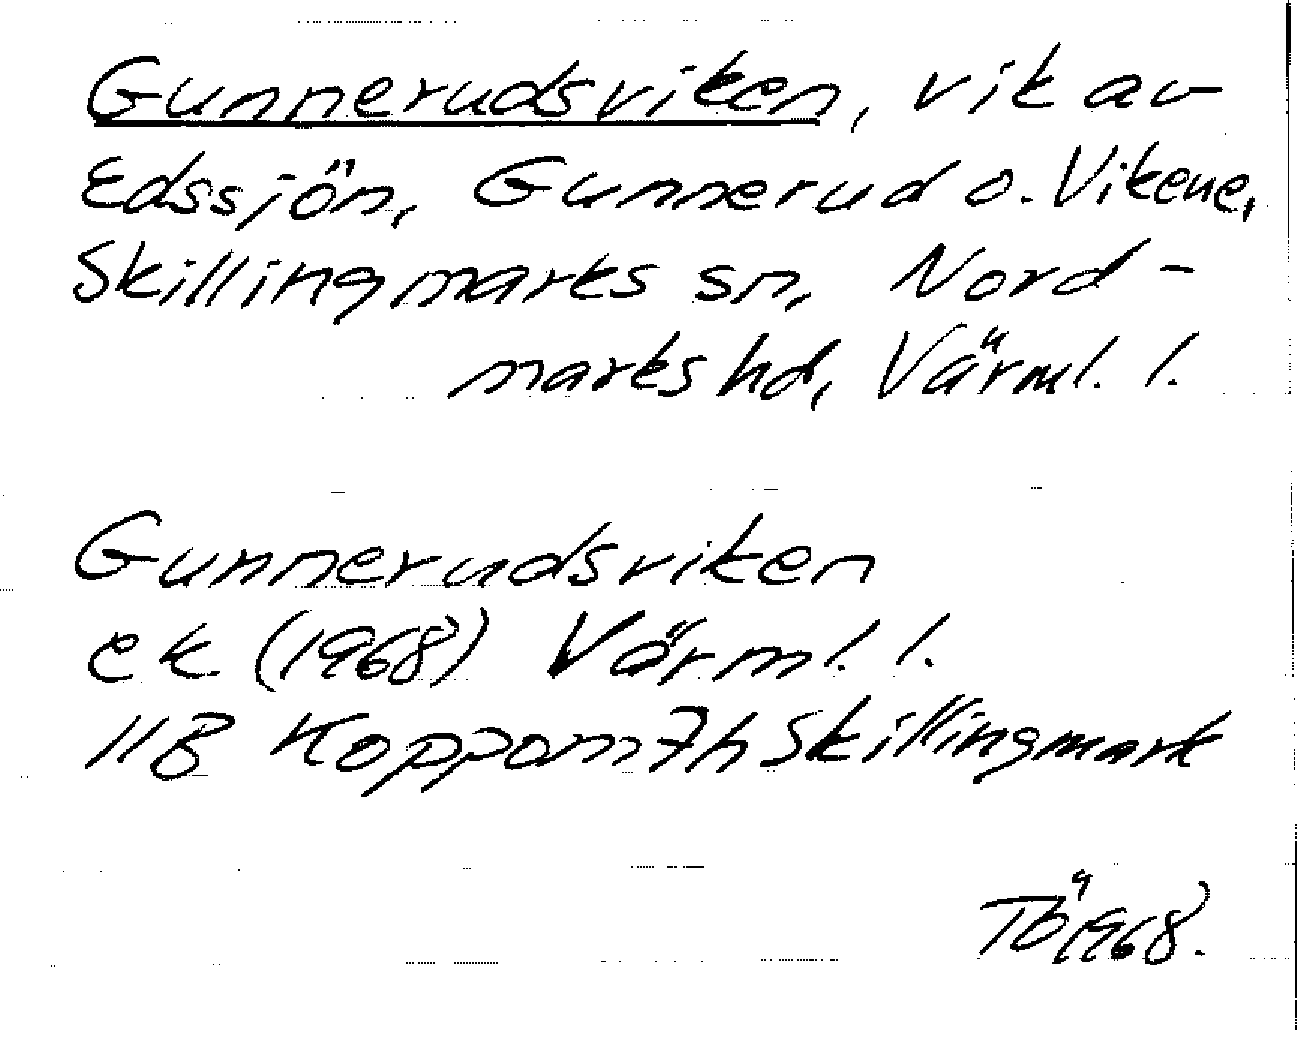 Gunnerudsviken, vik av
Edssjön, Gunnerud o. Vikene,
Skillingmarks sn, Nord-
marks hd, Värml. l.
Gunnerudsviken
ek (1968) Värml. l.
11B Koppom 7h Skillingmark
TÖ 1968.